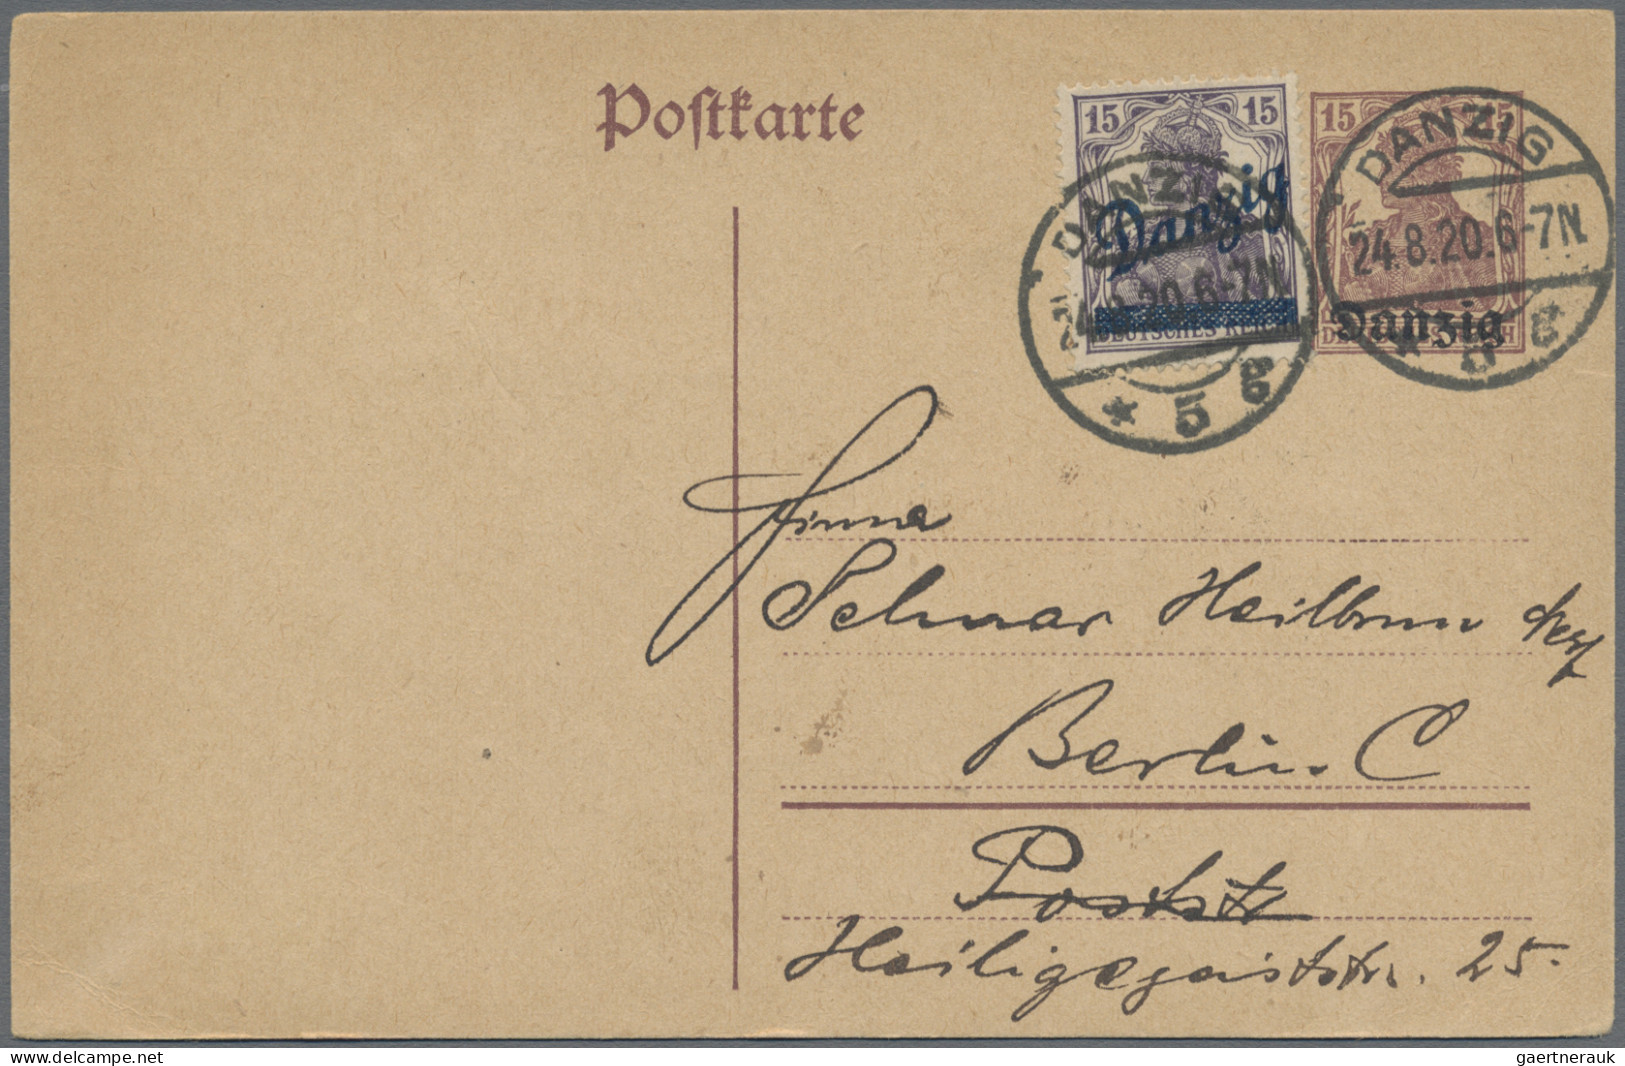 Postkarte
15 15
Danzig
DEUTSCHES REICH
DANZIG
24.8.20.6-7N
* 5 g
15 15
Danzig
DEUTSCHES REICH
DANZIG
24.8.20.6-7N
* 5 g
Firma
Selmar Heilbrun
Berlin. C
Poststr
Heiligegeiststr. 25.
delcampe.net
gaertnerauk